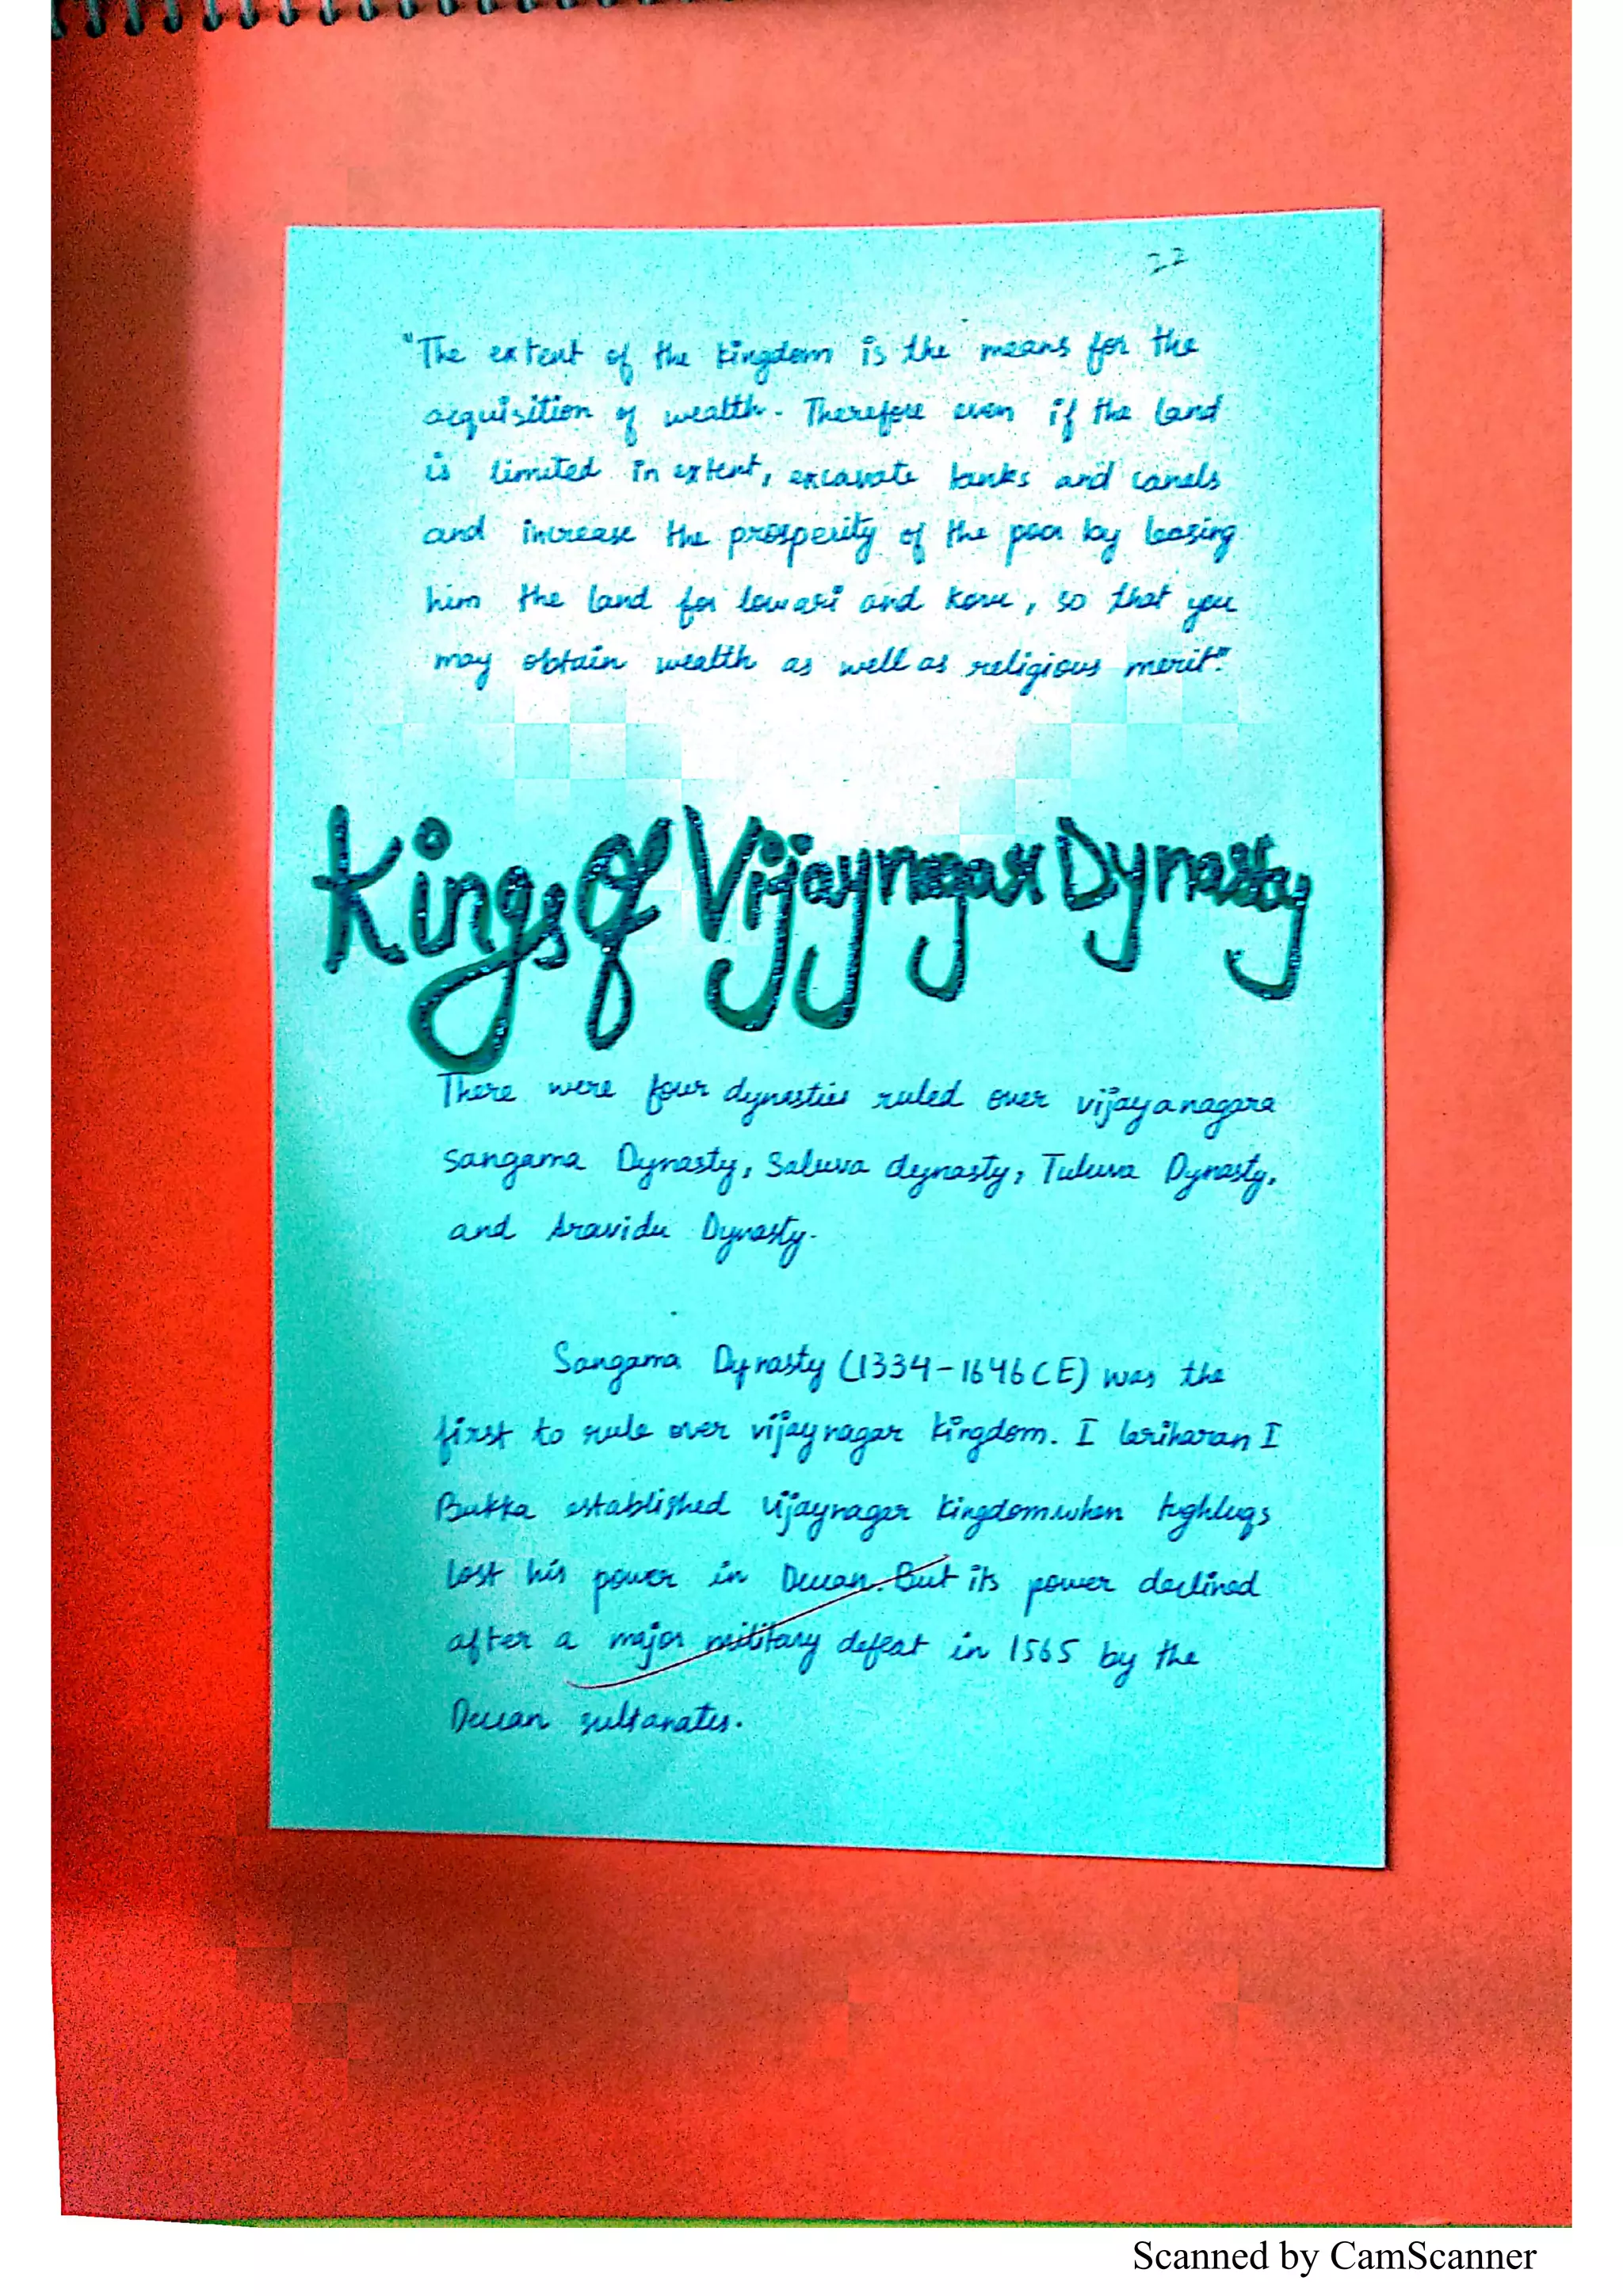 22
"The extent of the kingdom is the means for the
acquisition of wealth. Therefore even if the land
is limited in extent, excavate tanks and canals
and increase the prosperity of the poor by leasing
him the land for low ari and koru, so that you
may obtain wealth as well as religious merit."
Kings of Vijaynagar Dynasty
There were four dynasties ruled over vijayanagara
Sangama Dynasty, Saluva dynasty, Tuluva Dynasty,
and Aravidu Dynasty.
Sangama Dynasty (1334-1646CE) was the
first to rule over vijaynagar kingdom. I I
Bukka established vijaynagar kingdom.when tughluqs
lost his power in Deccan. But its power declined
after a major military defeat in 1565 by the
Deccan sultanates.
Scanned by CamScanner